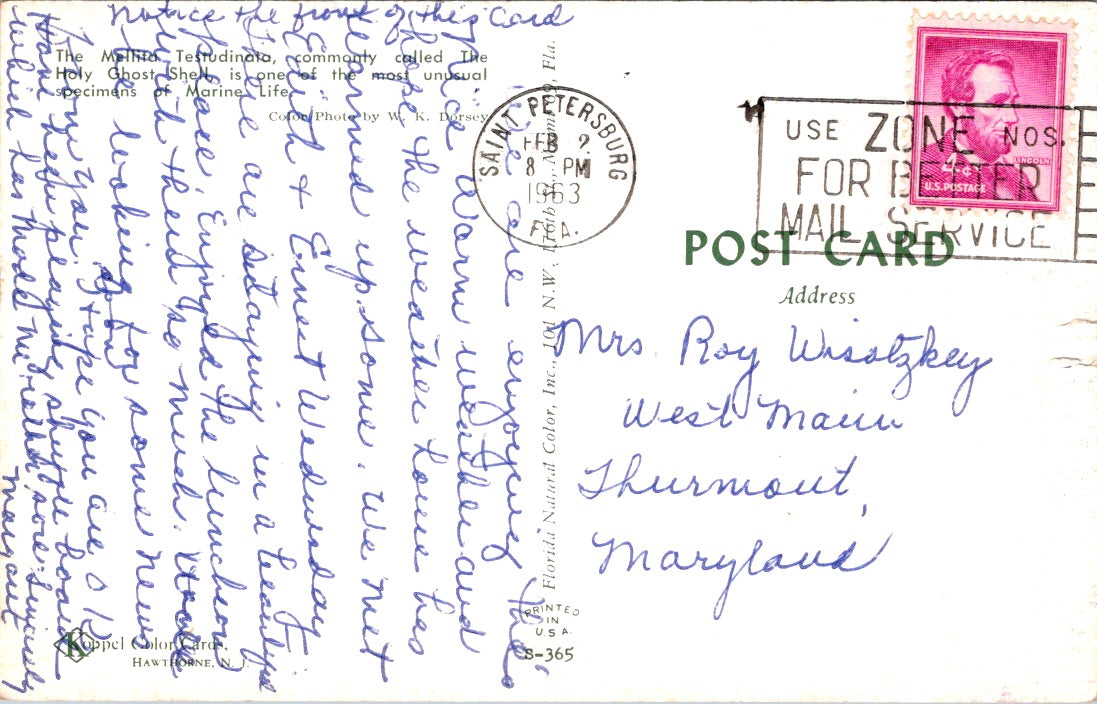 Notice the front of this Card
The Mellita Testudinata, commonly called The
Holy Ghost Shell, is one of the most unusual
specimens of Marine Life.
Color Photo by W. K. Dorsey
We are enjoying the
nice warm weather and
hope the weather home has
warmed up some. We met
Edith & Ernest Wednesday
are staying in a beautiful
place. Enjoyed the luncheon
with them so much.
be looking for some news
from you. hope you are O K
Have been playing shuffle board
which has made me rather sore. Sincerely
Margaret
Koppel Color Cards,
HAWTHORNE, N. J.
Florida Natural Color, Inc., N.W., Fla.
PRINTED
IN
U.S.A.
S-365
SAINT PETERSBURG
FEB 2
8 PM
1963
FLA.
USE ZONE NOS.
FOR BETTER
MAIL SERVICE
LINCOLN
4¢
U.S. POSTAGE
POST CARD
Address
Mrs Roy Wisotzkey
West Main
Thurmont,
Maryland